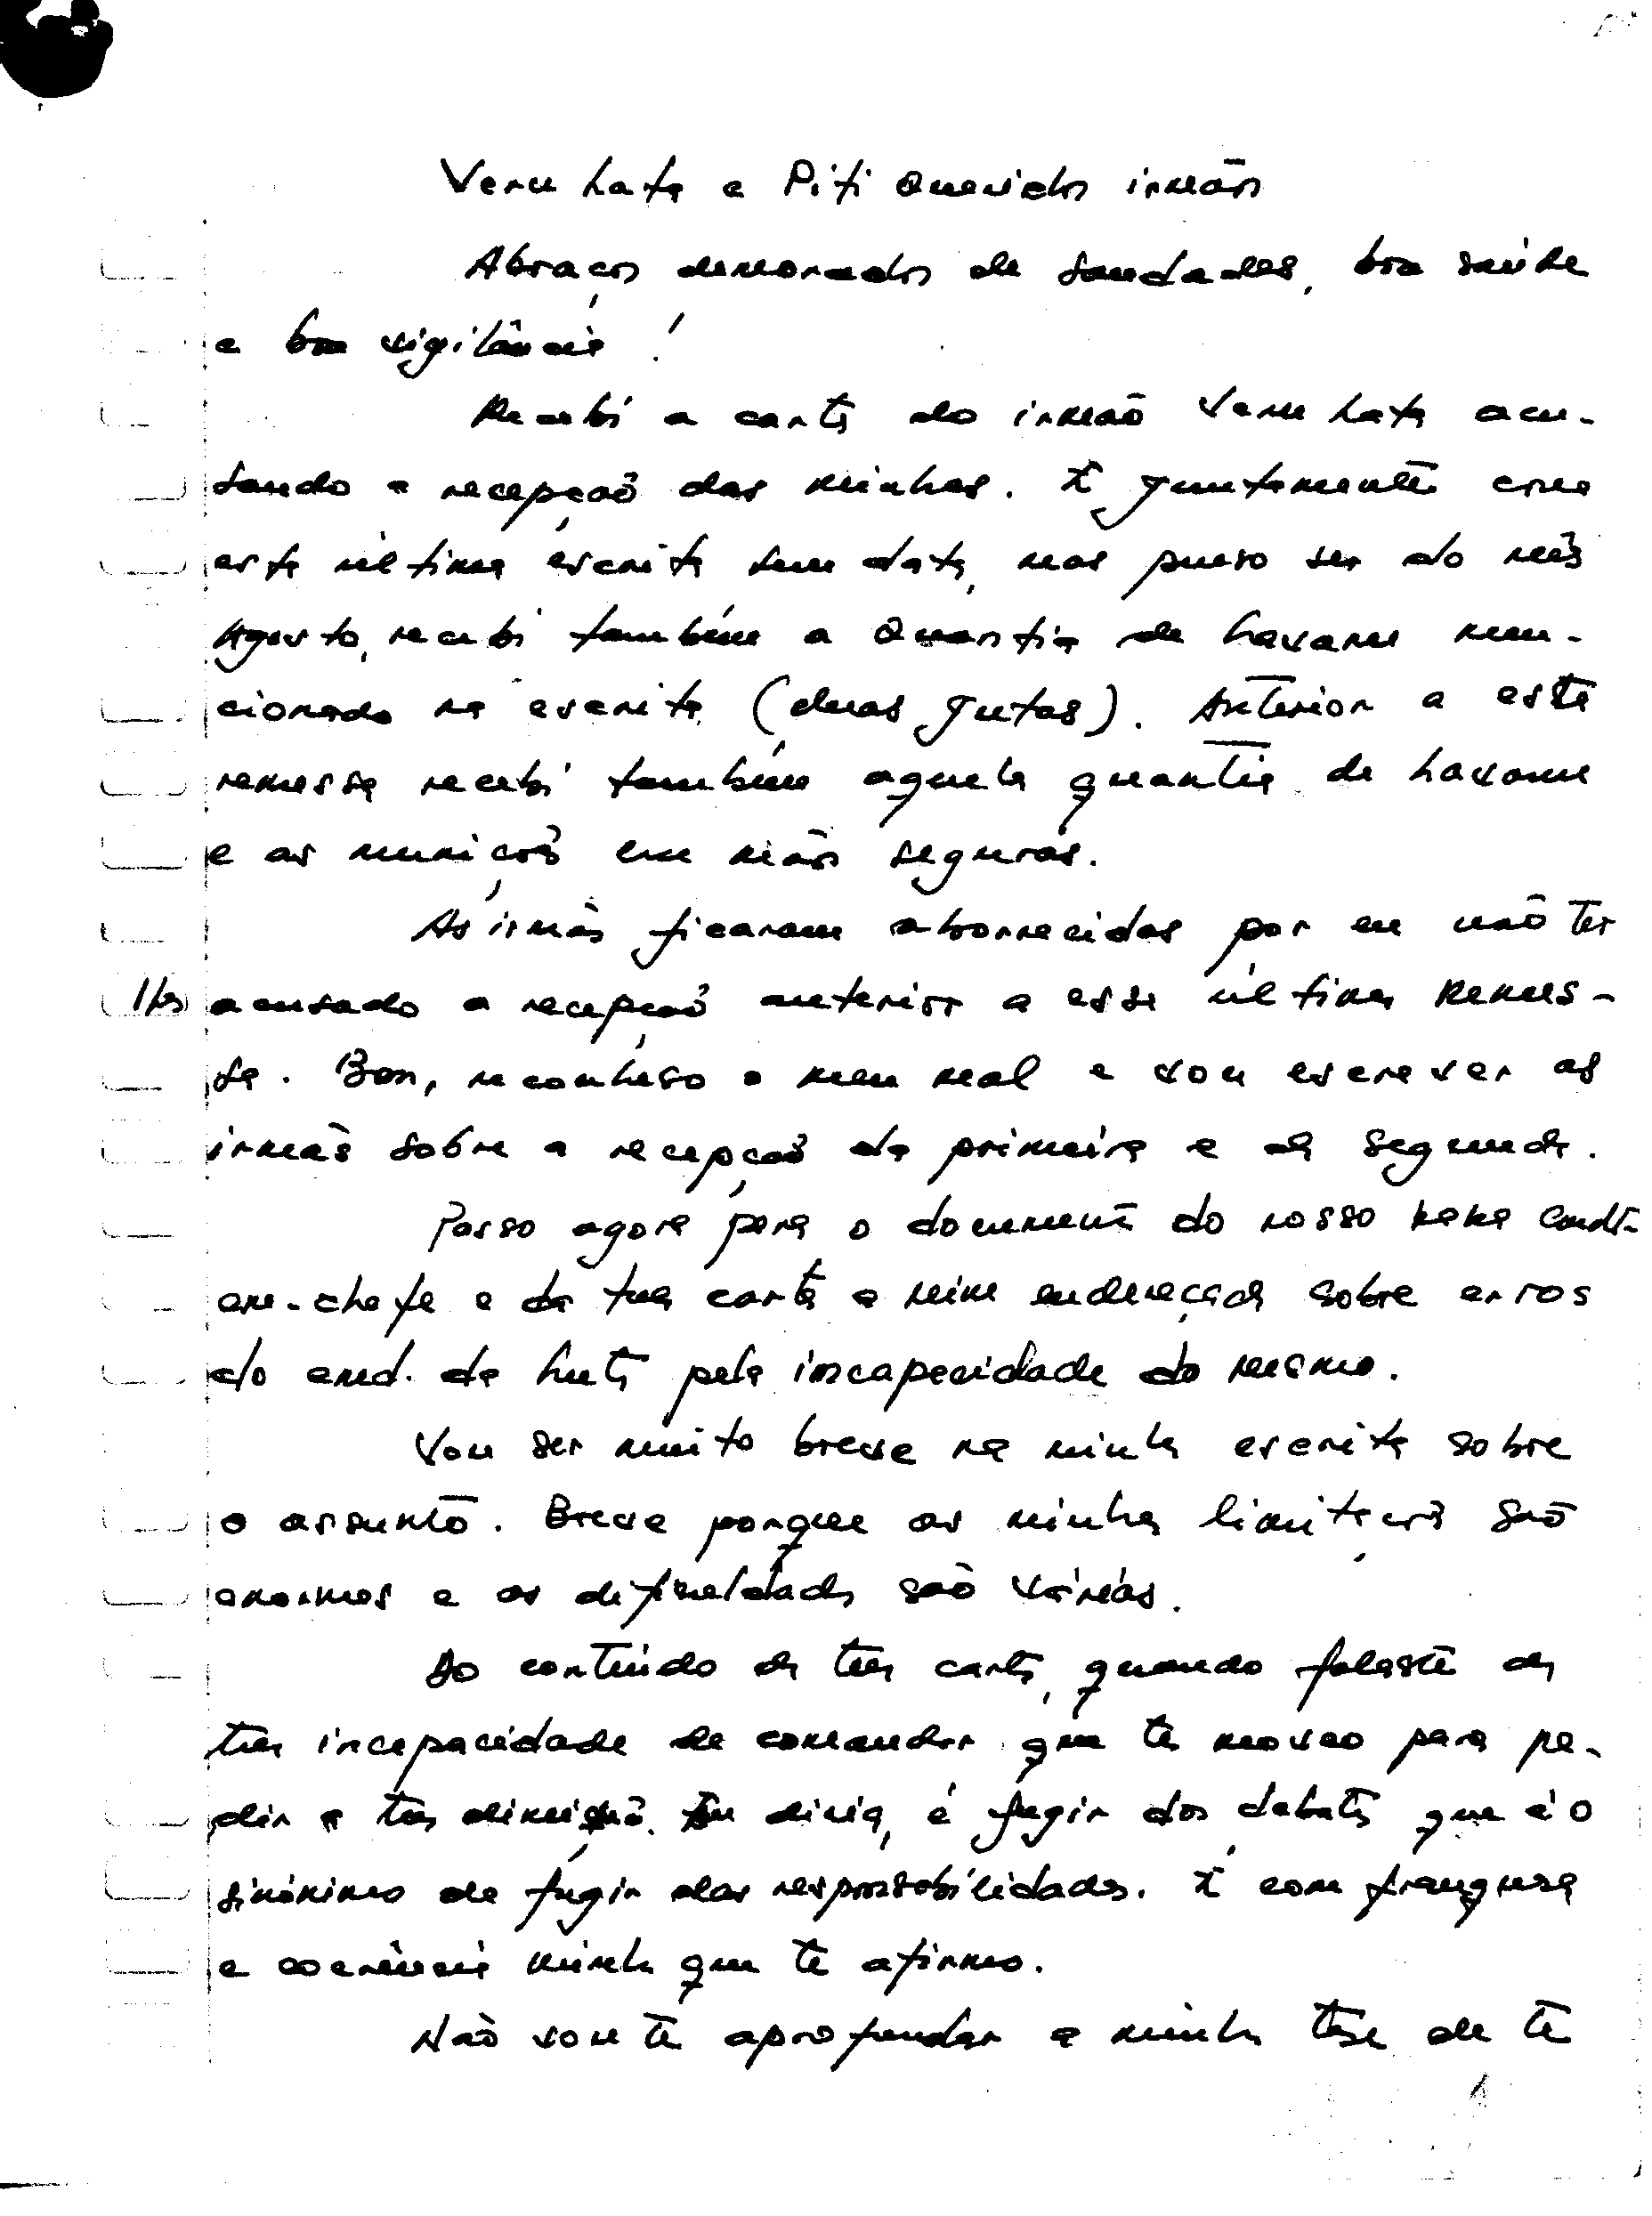 Veru Lata e Piti Queridos irmãos
Abraços demorados de saudades, boa saúde
e boa vigilância!
Recebi a carta do irmão Veru Lata acu-
sando a recepção das minhas. E juntamente com
esta última escrita sem data, mas puso ser do mês
Agosto, recebi também a Quantia de Lavaru men-
cionado na escrita (duas gutas). Anterior a esta
remessa recebi também aquela quantia de Lavaru
e as munições em mãos seguras.
As irmãs ficaram aborrecidas por eu não ter
acusado a recepção anterior a essa última Remes-
sa. Bom, reconheso o meu mal e vou escrever as
irmãs sobre a recepção da primeira e da segunda.
Passo agora para o documento do nosso
em-chefe e da tua carta a mim endereçada sobre erros
do cmd. da luta pela incapacidade do mesmo.
Vou ser muito breve na minha escrita sobre
o assunto. Breve porque as minhas limitações são
enormes e as dificuldades são várias.
Ao conteúdo da tua carta, quando falaste da
tua incapacidade de comandar que te moveo para pe-
dir a tua dimissão. Eu diria, é fugir dos debates que é o
sinónimo de fugir das responsabilidades. É com franquesa
e coerência minha que te afirmo.
Não vou te aprofundar a minha tese de te